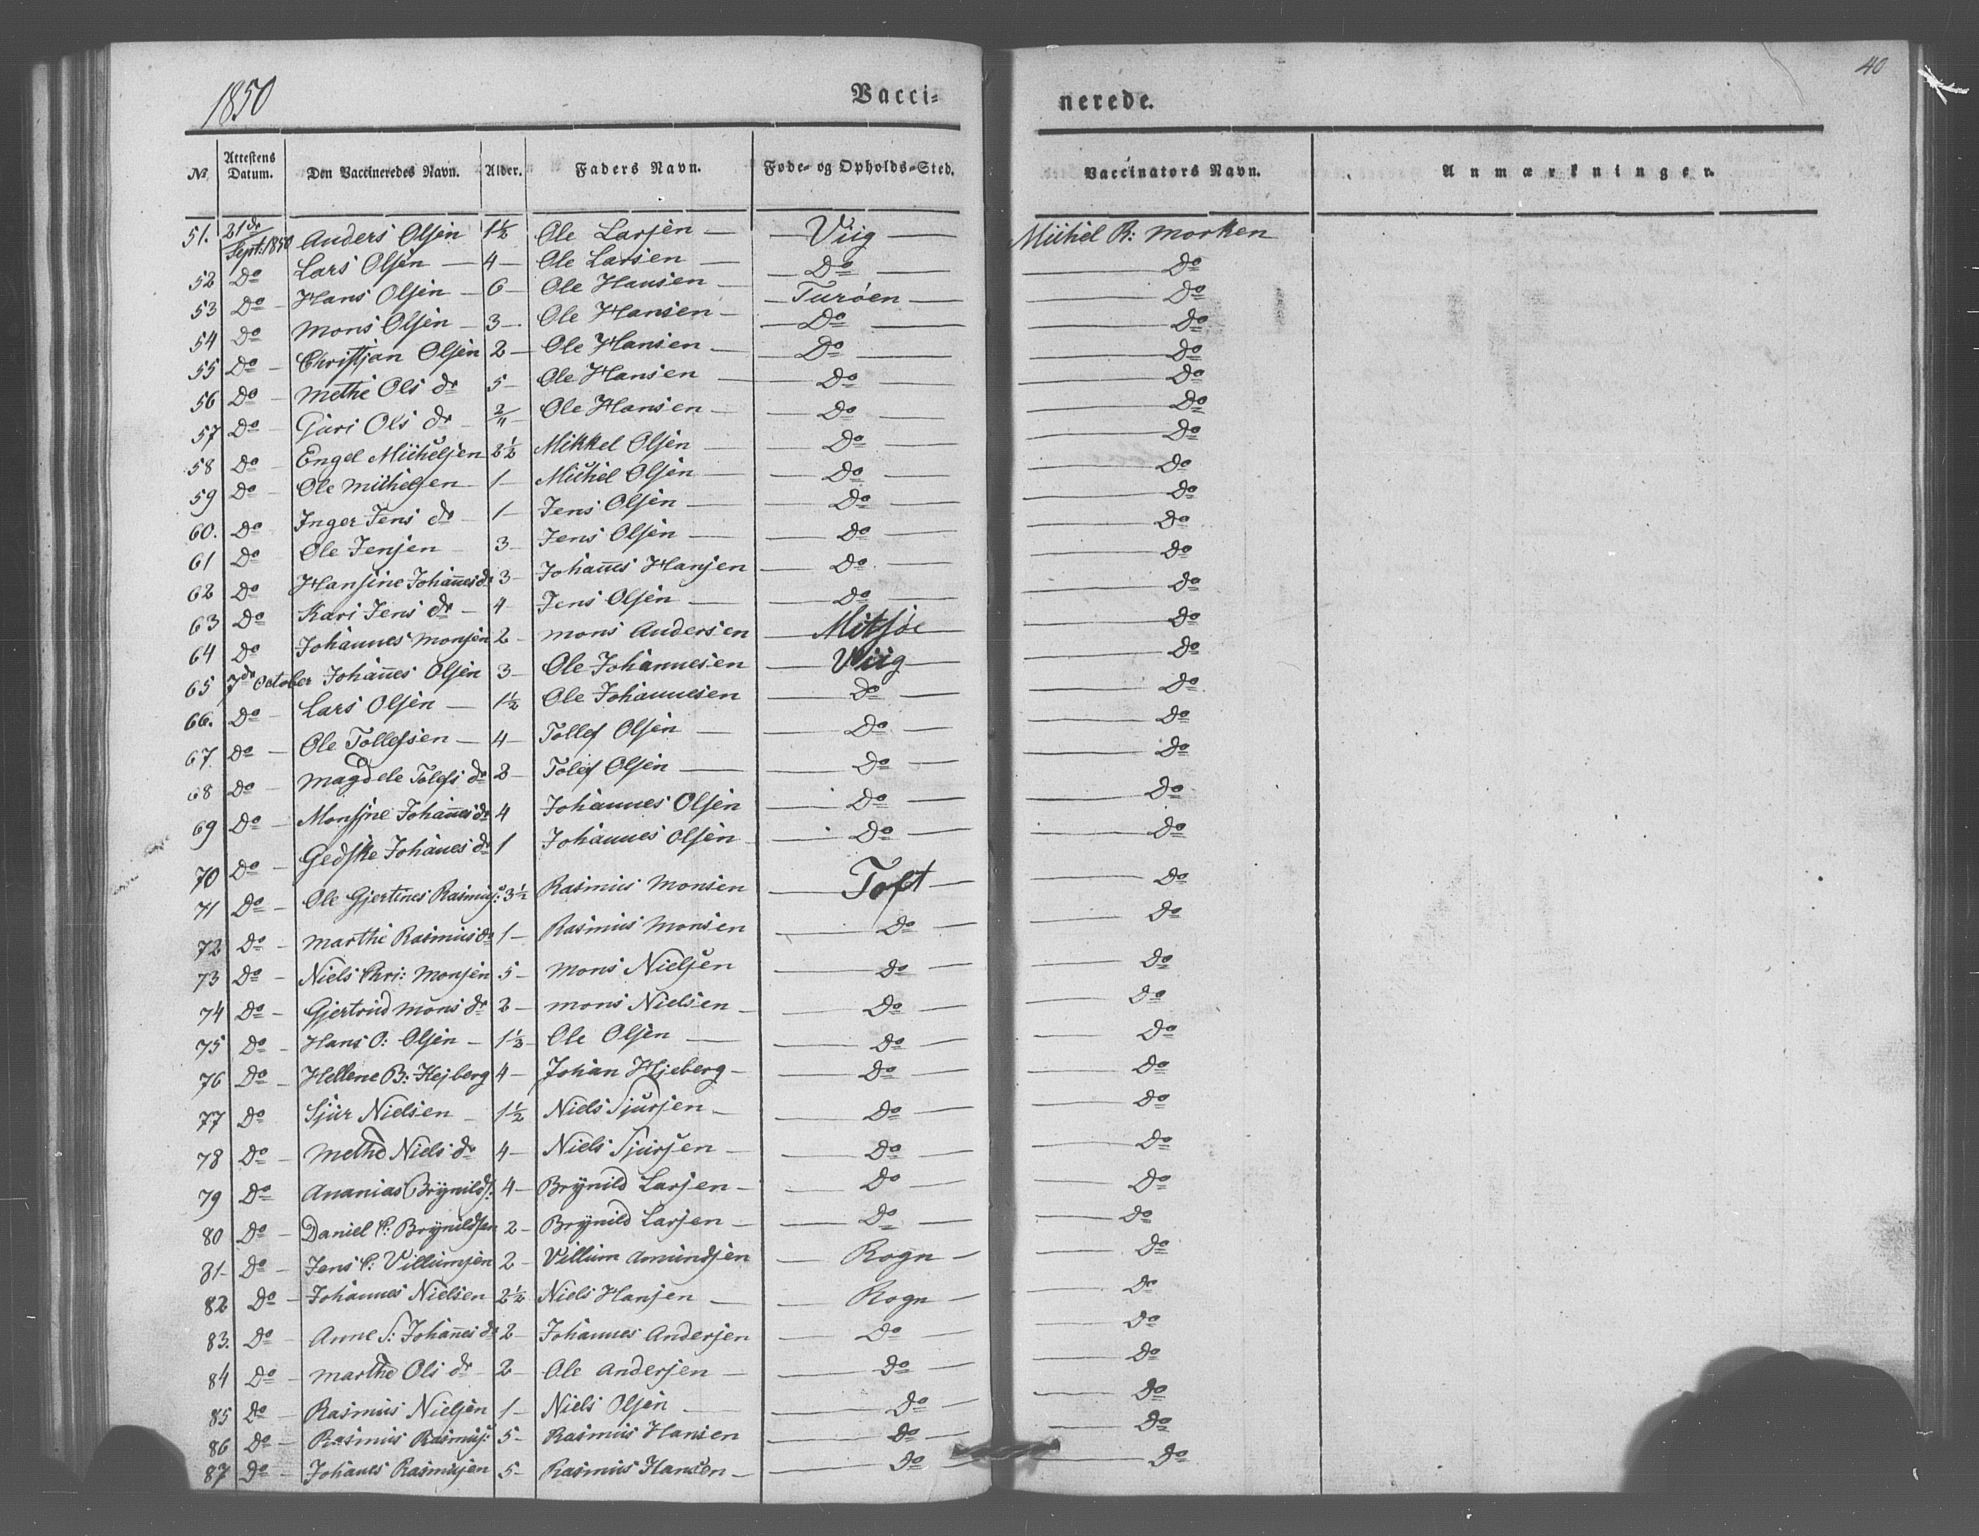 1850
Vacci-
nerede.
40
No. Attestens Datum. Den Vaccineredes Navn. Alder. Faders Navn. Føde- og Opholds-Sted. Vaccinators Navn. Anmærkninger.
51. 21de Sept: 1850 Anders Olsen 1½ Ole Larsen — Viig — Michel R: Morken
52 Do Lars Olsen — 4 — Ole Larsen — Do — Do
53 Do — Hans Olsen — 6 — Ole Hansen — Turöen — Do
54 Do Mons Olsen — 3 — Ole Hansen — Do — Do
55 Do — Christjan Olsen 2 — Ole Hansen — Do — Do
56 Do — Methe Ols dr 5 — Ole Hansen — Do — Do
57 Do — Guri Ols dr Ole Hansen — Do — Do
58 Do — Engel Michelsen 2½ Mikkel Olsen — Do — Do
59 Do — Ole Michelsen 1 — Michel Olsen — Do — Do
60. Do — Inger Jens dr — 1 — Jens Olsen — Do — Do
61 Do Ole Jensen — 3 — Jens Olsen — Do — Do
62 Do Hansine Johannes dr 3 — Johannes Hansen — Do — Do
63 Do Kari Jens dr — 4 Jens Olsen — Do — Do
64 Do Johannes Monsen 2 — Mons Andersen — Mitsöe — Do
65 7de October Johannes Olsen 3 — Ole Johannesen — Viig — Do
66. Do — Lars Olsen — 1½ Ole Johannesen — Do — Do
67. Do — Ole Tollefsen — 4 — Tollef Olsen — Do — Do
68 Do — Magdele Tolefs dr 8 — Tolef Olsen — Do — Do
69 Do — Monsine Johannes dr 4 Johannes Olsen — Do — Do
70 Do — Gedske Johanes dr 1 Johannes Olsen — Do — Do
71 Do — Ole Gjertines Rasmus: 3½ Rasmus Monsen — Toft — Do
72 Do — Marthe Rasmus dr 1 — Rasmus Monsen — Do — Do
73 Do — Niels Chri: Monsen 5 — Mons Nielsen — Do — Do
74 Do — Gjertrud Mons dr 2 — Mons Nielsen — Do — Do
75 Do — Hans O: Olsen — 1½ — Ole Olsen — Do — Do
76 Do — Hellene B: Hejberg 4 — Johan Hjeberg — Do — Do
77 Do Sjur Nielsen — 1½ Niels Sjursen — Do — Do
78 Do — Methe Niels dr 4 — Niels Sjursen — Do — Do
79 Do Ananias Brynilds: 4 — Brynild Larsen — Do — Do
80 Do — Daniel C: Brynildsen 2 — Brynild Larsen — Do — Do
81 Do — Jens C: Villumsen 2 — Villum Amundsen — Rogn — Do
82 Do — Johannes Nielsen 2½ Niels Hansen — Rogn — Do
83. Do — Anne S: Johannes dr 2 — Johannes Andersen — Do — Do
84 Do — Marthe Ols dr 2 — Ole Andersen — Do — Do
85 Do — Rasmus Nielsen 1 — Niels Olsen — Do — Do
86 Do — Rasmus Rasmus: 5 — Rasmus Hansen — Do — Do
87 Do — Johanes Rasmusen 5 — Rasmus Hansen — Do — Do